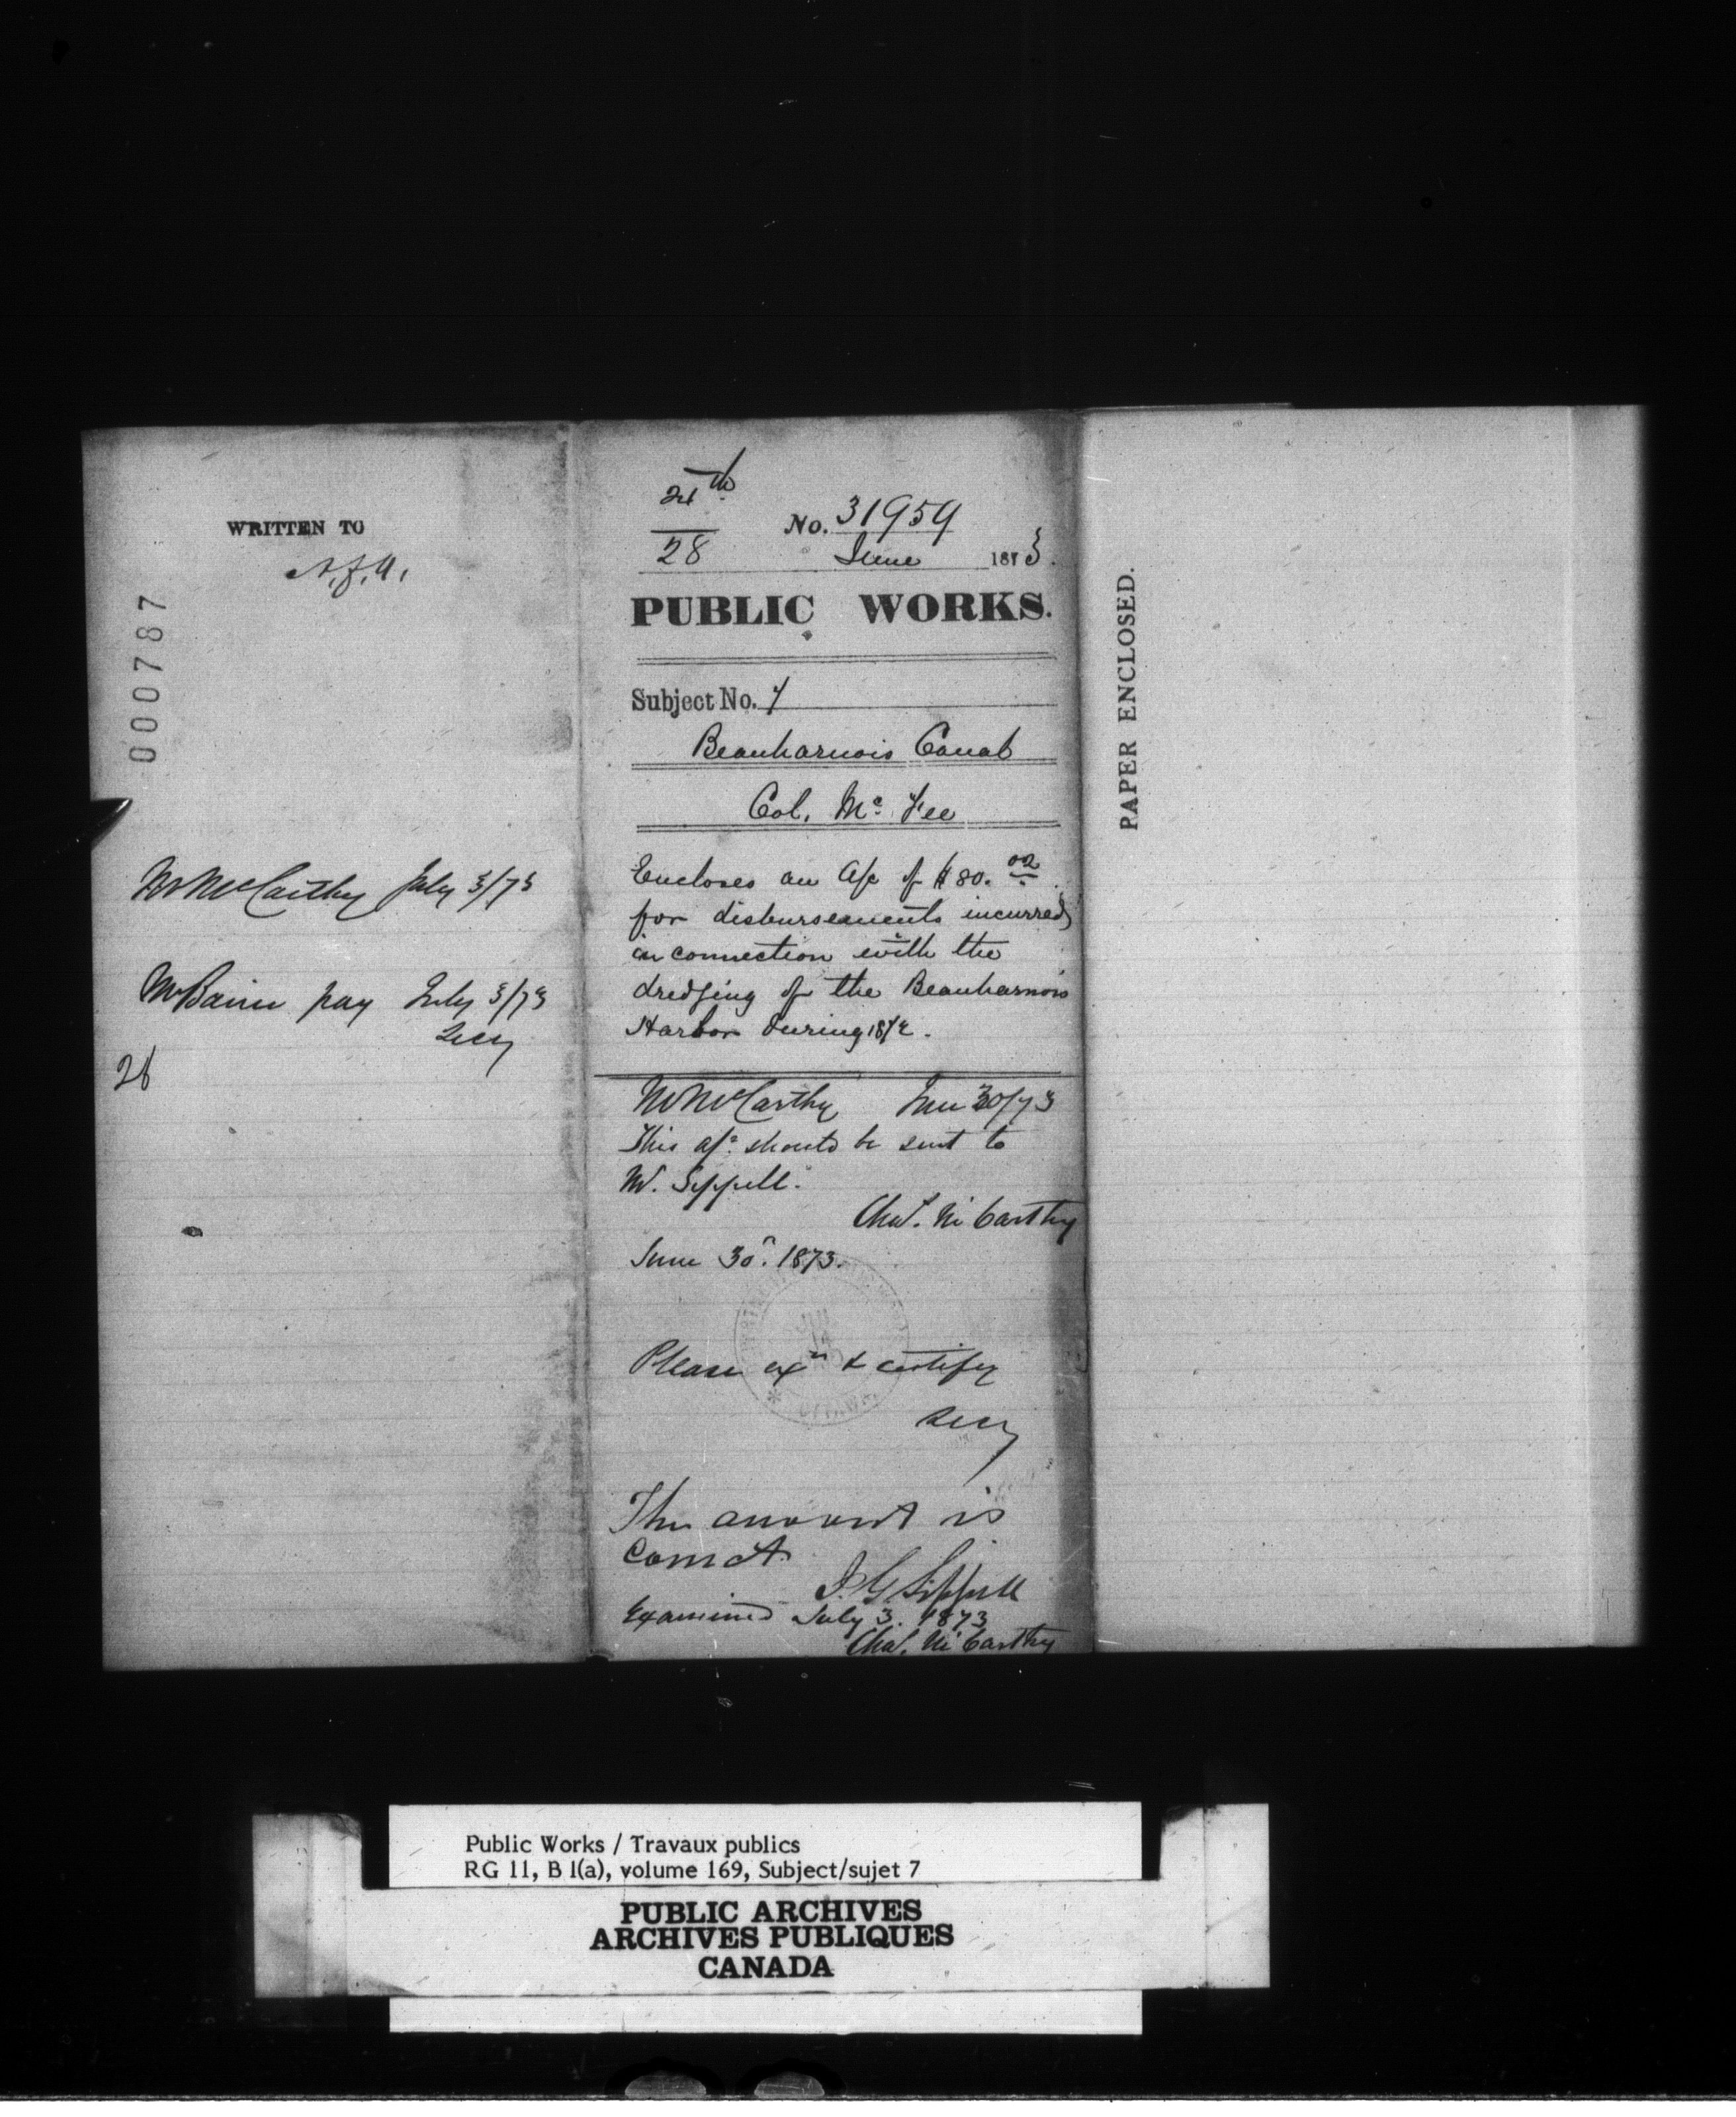 WRITTEN TO
N.J.A.
000787
Mr McCarthy July 3/73
Mr Baine pay July 3/73
Secy
26
24th
28
No. 31959
June 1873.
PUBLIC WORKS.
Subject No. 7
Beauharnois Canal
Col. Mc Fee
Encloses an a/c of $80.02
for disbursements incurred
in connection with the
dredging of the Beauharnois
Harbor during 1872.
Mr McCarthy June 30/73
This a/c should be sent to
Mr. Sippell.
Chas. McCarthy
June 30th. 1873.
Please exn & certify
Secy
The amount is
correct
J. G Sippell
Examined July 3. 1873
Chas. McCarthy
PAPER ENCLOSED.
Public Works / Travaux publics
RG 11, B 1(a), volume 169, Subject/sujet 7
PUBLIC ARCHIVES
ARCHIVES PUBLIQUES
CANADA